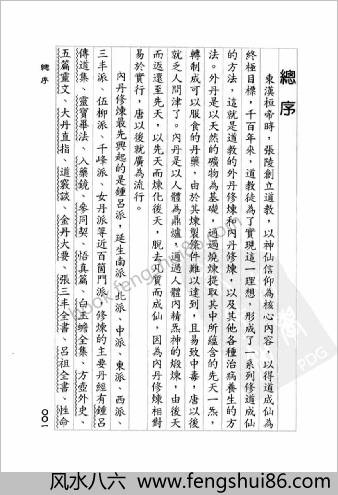 總序
東漢桓帝時，張陵創立道教，以神仙信仰為核心內容，以得道成仙為
終極目標，千百年來，道教徒為了實現這一理想，形成了一系列修道成仙
的方法，這就是道教的外丹修煉和內丹修煉，以及其他各種治病養生的方
法。外丹是以天然的礦物為基礎，通過燒煉提取其中所蘊含的先天一炁，
轉制成可以服食的丹藥，由於其煉製條件難以達到，且易致中毒，唐以後
就乏人問津了。內丹是以人體為鼎爐，通過人體內精炁神的煅煉，由後天
而返還至先天，以先天而煉化後天，脫去凡質而成仙，因為內丹修煉相對
易於實行，唐以後就廣為流行。
內丹修煉最先興起的是鍾呂派，延生南派、北派、中派、東派、西派、
三丰派、伍柳派、千峰派、女丹派等近百箇門派，修煉的主要丹經有鍾呂
傳道集、靈寶畢法、入藥鏡、參同契、悟真篇、白玉蟾全集、方壺外史、
五篇靈文、大丹直指、道竅談、金丹大要、張三丰全書、呂祖全書、性命
總序
001
book.fengshui86.com
PDG
风水八六 www.fengshui86.com